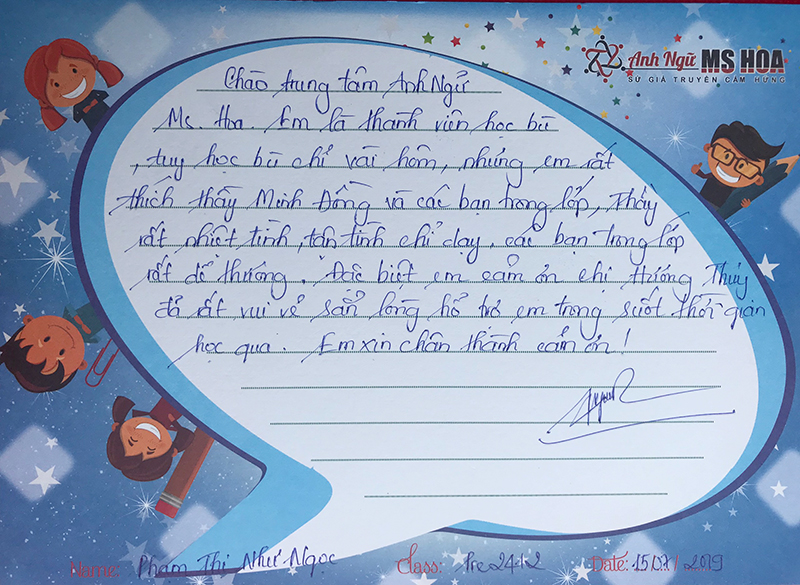 Anh Ngữ MS HOA
SỨ GIẢ TRUYỀN CẢM HỨNG
Chào trung tâm Anh Ngữ
Ms. Hoa. Em là thành viên học bù
, tuy học bù chỉ vài hôm, nhưng em rất
thích thầy Minh Đồng và các bạn trong lớp, Thầy
rất nhiệt tình, tận tình chỉ dạy, các bạn trong lớp
rất dễ thương. Đặc biệt em cảm ơn chị Hương Thủy
đã rất vui vẻ sẵn lòng hổ trợ em trong suốt thời gian
học qua. Em xin chân thành cảm ơn!
Name: Phạm Thị Như Ngọc Class: Pre 24-12 Date: 15/07/2019